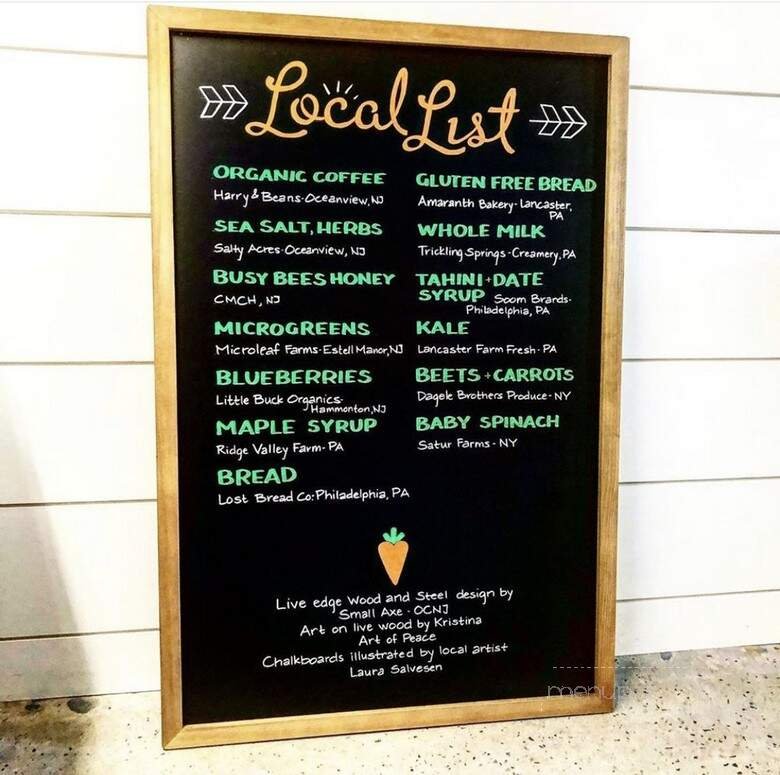 Local List
ORGANIC COFFEE
Harry & Beans-Oceanview, NJ
SEA SALT, HERBS
Salty Acres-Oceanview, NJ
BUSY BEES HONEY
CMCH, NJ
MICROGREENS
Microleaf Farms-Estell Manor, NJ
BLUEBERRIES
Little Buck Organics-
Hammonton, NJ
MAPLE SYRUP
Ridge Valley Farm-PA
BREAD
Lost Bread Co: Philadelphia, PA
GLUTEN FREE BREAD
Amaranth Bakery-Lancaster,
PA
WHOLE MILK
Trickling Springs-Creamery, PA
TAHINI + DATE
SYRUP Soom Brands-
Philadelphia, PA
KALE
Lancaster Farm Fresh-PA
BEETS + CARROTS
Dagele Brothers Produce-NY
BABY SPINACH
Satur Farms-NY
Live edge Wood and Steel design by
Small Axe-OCNJ
Art on live wood by Kristina
Art of Peace
Chalkboards illustrated by local artist
Laura Salvesen